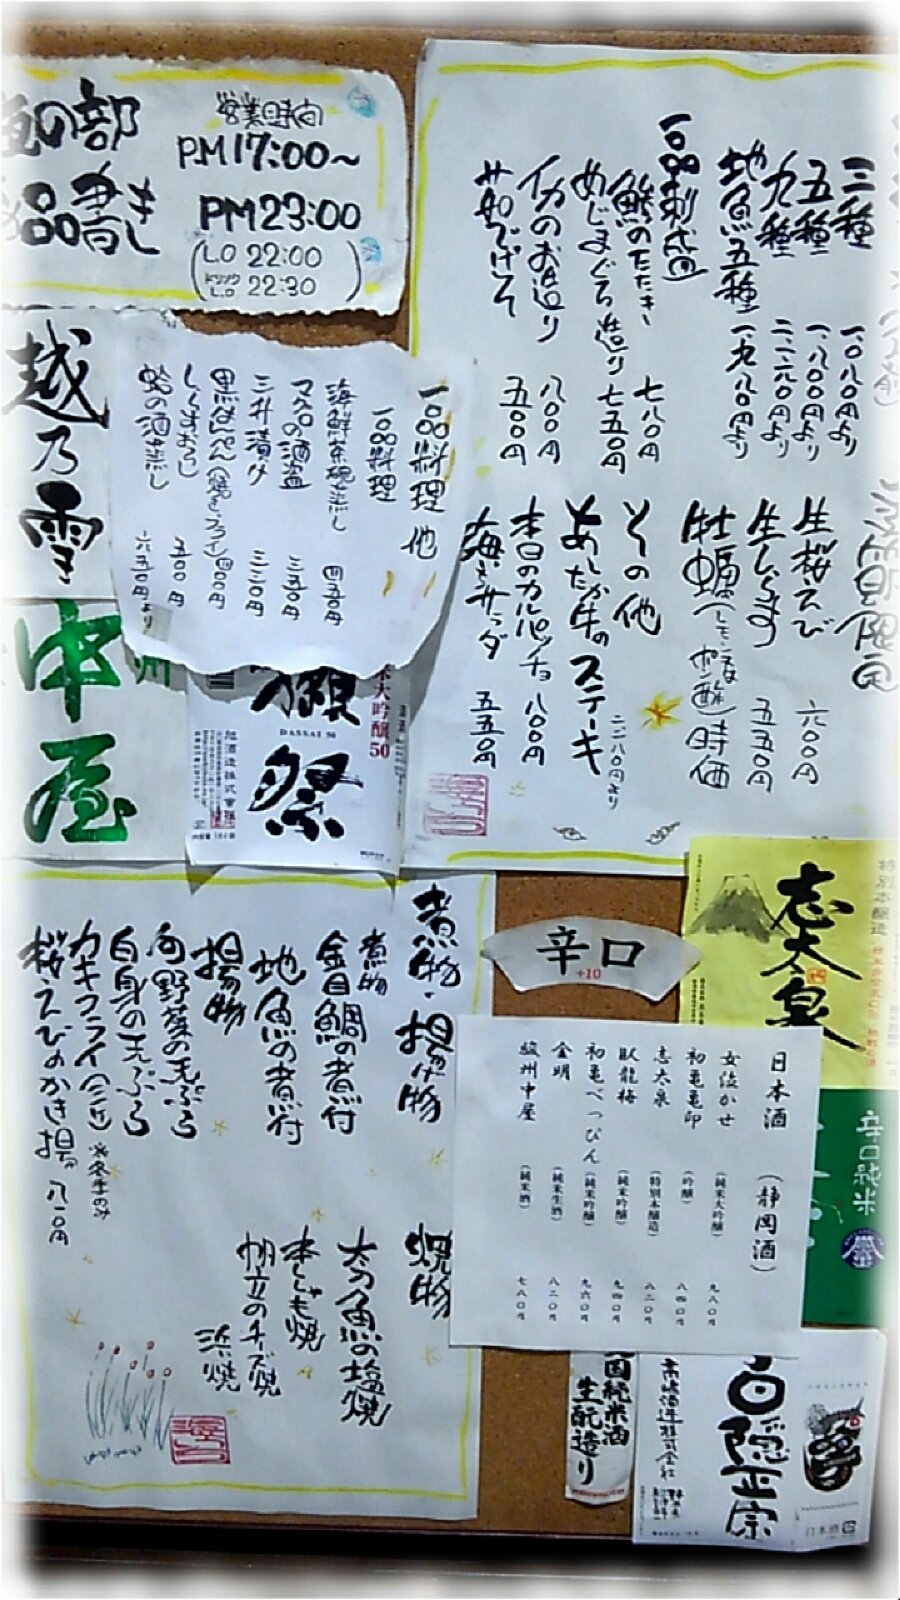 夜の部
お品書き
営業時間
PM17:00~
PM23:00
(LO 22:00
ドリンクLO 22:30)
三種 一、〇八〇円より
五種 一、八〇〇円より
九種 二、二八〇円より
地魚五種 一、九八〇円より
一品刺盛
鯵のたたき 七八〇円
めじまぐろ造り 七五〇円
イカのお造り 八〇〇円
茹でげそ 五〇〇円
生桜えび 六〇〇円
生しらす 五五〇円
牡蠣(レモン又はポン酢)時価
その他
あしたか牛のステーキ 二、二八〇円より
本日のカルパッチョ 八〇〇円
海老サラダ 五五〇円
一品料理 他
一品料理
海鮮茶碗蒸し 四五〇円
マグロの酒盗 三五〇円
三升漬け 三二〇円
黒はんぺん(焼き、フライ)四〇〇円
しらすおろし 五〇〇円
蛤の酒蒸し 六五〇円より
越乃雪
中屋
獺祭
DASSAI 50
米大吟醸50
旭酒造株式會社
煮物・揚げ物
煮物
金目鯛の煮付
地魚の煮付
揚物
旬野菜の天ぷら
白身の天ぷら
カキフライ(三ヶ)※冬季のみ
桜えびのかき揚げ 八一〇円
焼物
太刀魚の塩焼
本ししゃも焼
帆立のチーズ焼
浜焼
辛口
+10
志太泉
特別本醸造
辛口純米
日本酒 (静岡酒)
女泣かせ (純米大吟醸) 九八〇円
初亀亀印 (吟醸) 八四〇円
志太泉 (特別本醸造) 八二〇円
臥龍梅 (純米吟醸) 九四〇円
初亀べっぴん (純米吟醸) 九六〇円
金明 (純米生酒) 八二〇円
駿州中屋 (純米酒) 七八〇円
国純米酒
生酛造り
白隠正宗
高嶋酒造株式会社
日本酒